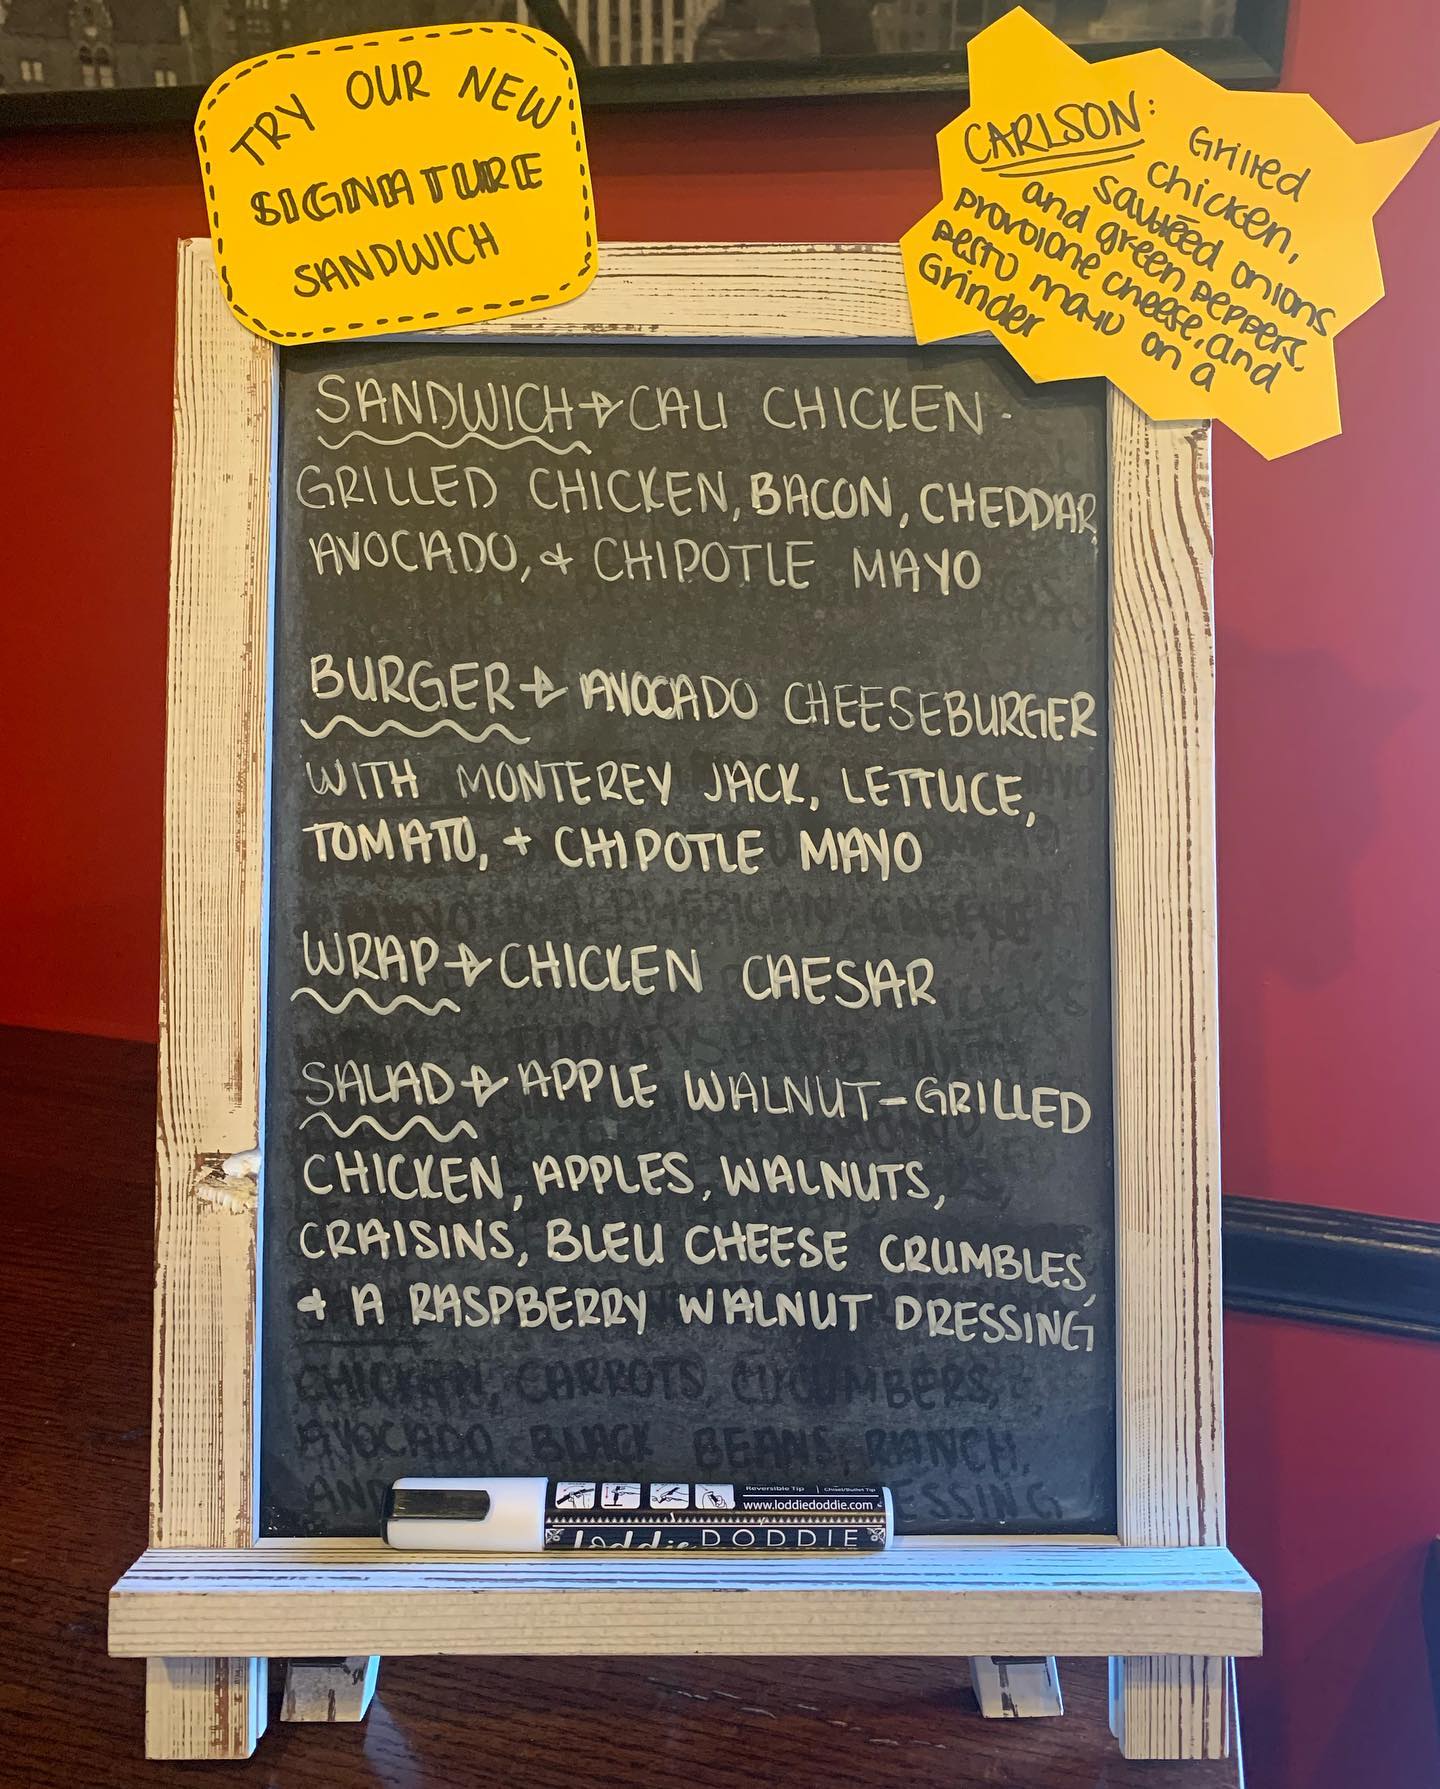 TRY OUR NEW
SIGNATURE
SANDWICH
CARLSON: Grilled
chicken,
sautéed onions
and green peppers,
provolone cheese, and
pesto mayo on a
Grinder
SANDWICH → CALI CHICKEN -
GRILLED CHICKEN, BACON, CHEDDAR,
AVOCADO, & CHIPOTLE MAYO
BURGER → AVOCADO CHEESEBURGER
WITH MONTEREY JACK, LETTUCE,
TOMATO, + CHIPOTLE MAYO
WRAP → CHICKEN CAESAR
SALAD → APPLE WALNUT - GRILLED
CHICKEN, APPLES, WALNUTS,
CRAISINS, BLEU CHEESE CRUMBLES,
& A RASPBERRY WALNUT DRESSING
CHICKEN, CARROTS, CUCUMBERS,
AVOCADO BLACK BEANS, RANCH,
AND ESSING
Reversible Tip | Chisel/Bullet Tip
www.loddiedoddie.com
loddie DODDIE